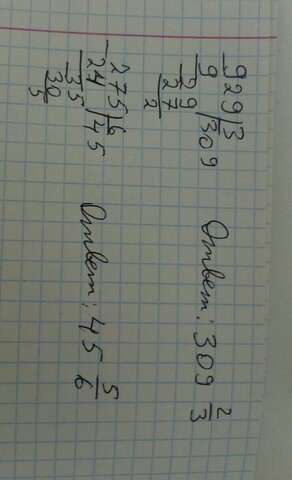 929|3
9 309
29
27
2
Ответ: 309 2/3
275|6
24 45
35
30
5
Ответ: 45 5/6